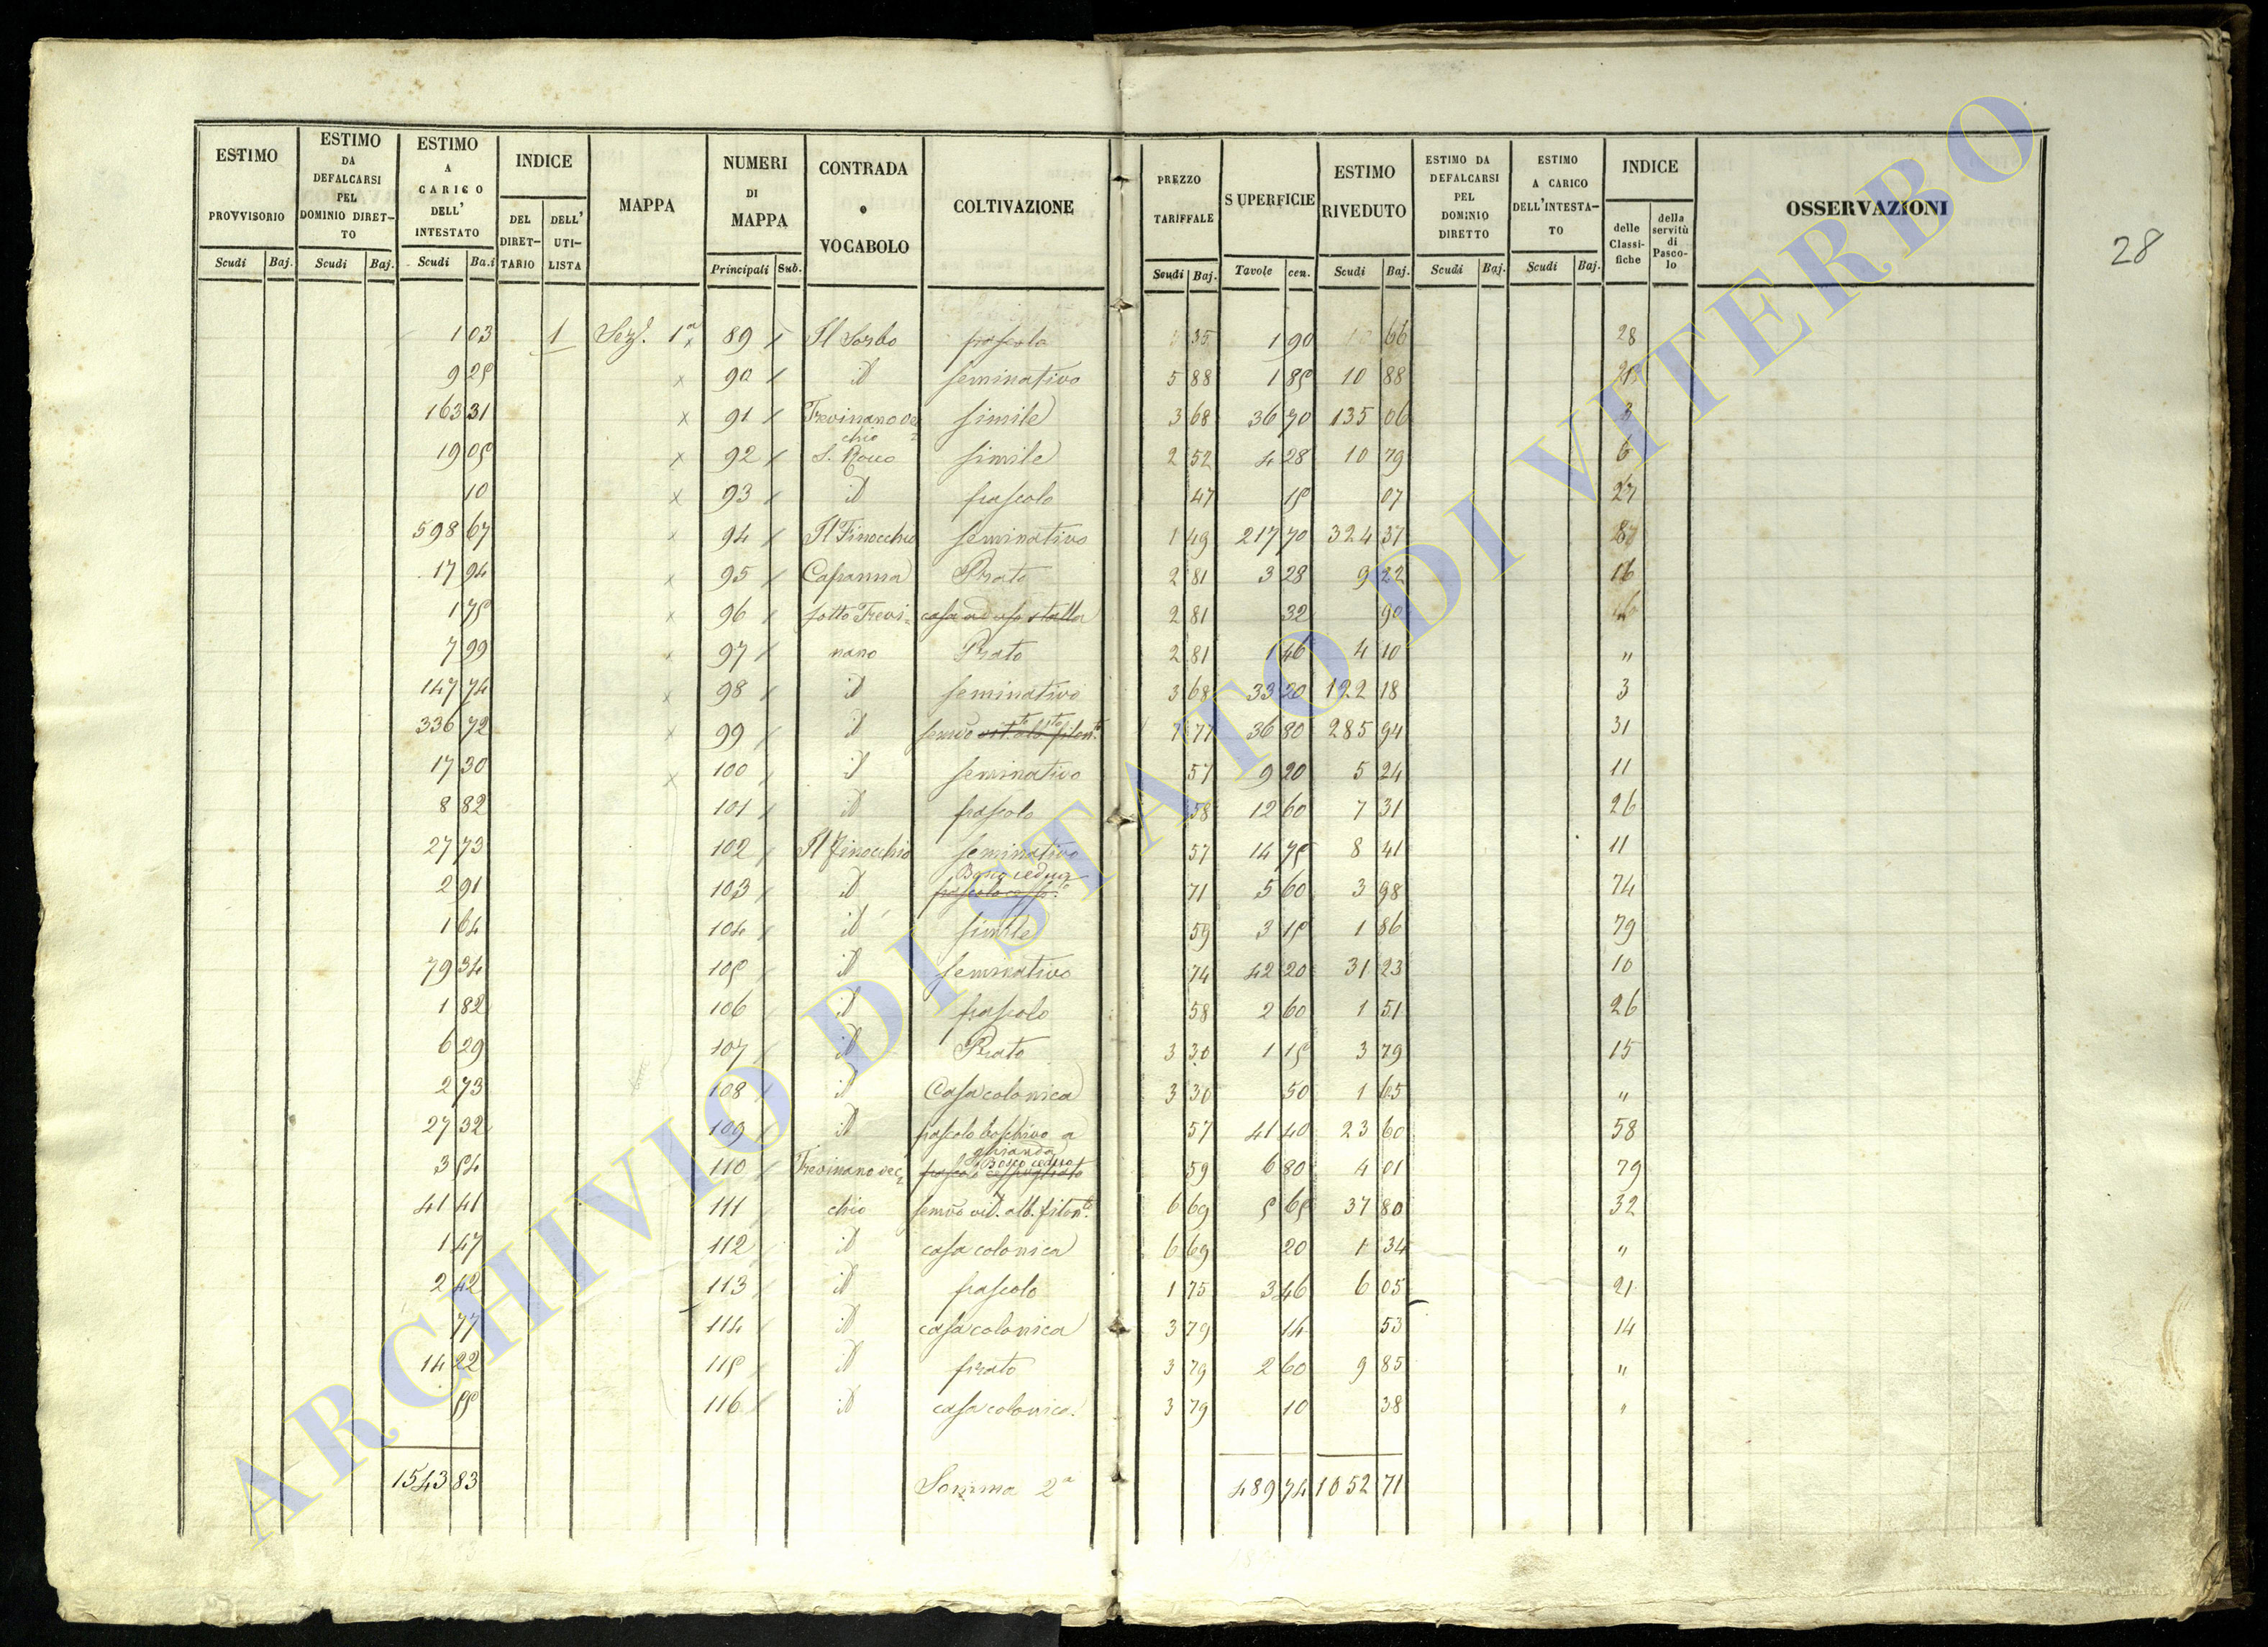 ESTIMO PROVVISORIO Scudi Baj. ESTIMO DA DEFALCARSI PEL DOMINIO DIRETTO Scudi Baj. ESTIMO A CARICO DELL' INTESTATO Scudi Ba.i INDICE DEL DIRETTARIO DELL' UTILISTA MAPPA NUMERI DI MAPPA Principali Sub. CONTRADA o VOCABOLO COLTIVAZIONE PREZZO TARIFFALE Scudi Baj. SUPERFICIE Tavole cen. ESTIMO RIVEDUTO Scudi Baj. ESTIMO DA DEFALCARSI PEL DOMINIO DIRETTO Scudi Baj. ESTIMO A CARICO DELL'INTESTATO Scudi Baj. INDICE delle Classifiche della servitù di Pascolo OSSERVAZIONI
28
1 03 1 Sez.e 1a 89 Il Sorbo pascolo 35 1 90 66 28
9 25 90 id seminativo 5 88 1 85 10 88
163 31 91 Trevinano vecchio simile 3 68 36 70 135 06 3
19 05 92 S. Rocco simile 2 52 4 28 10 79 6
10 93 id pascolo 47 15 07 27
598 67 94 Il Finocchio seminativo 1 49 217 70 324 37
17 94 95 Capanna Prato 2 81 3 28 9 22 16
1 75 96 sotto Trevi= casa ad uso stalla 2 81 32 90
7 99 97 nano Prato 2 81 1 46 4 10 "
147 74 98 id seminativo 3 68 33 20 122 18 3
336 72 99 id semivo vit.to alb.to filon.to 7 77 36 80 285 94 31
17 30 100 id seminativo 57 9 20 5 24 11
8 82 101 id pascolo 58 12 60 7 31 26
27 73 102 Il Finocchio seminativo 57 14 75 8 41 11
2 91 103 id Bosco ceduo 71 5 60 3 98 74
1 64 104 id simile 59 3 15 1 86 79
79 34 105 id seminativo 74 42 20 31 23 10
1 82 106 id pascolo 58 2 60 1 51 26
6 29 107 id Prato 3 30 1 15 3 79 15
2 73 108 id Casa colonica 3 30 50 1 65 "
27 32 109 id pascolo boschivo a ghianda 57 41 40 23 60 58
3 54 110 Trevinano vec= pascolo cespugliato Bosco ceduo 59 6 80 4 01 79
41 41 111 chio semivo vit. alb. filon.to 6 69 5 65 37 80 32
1 47 112 id casa colonica 6 69 20 1 34 "
2 42 113 id pascolo 1 75 3 46 6 05 21
77 114 id casa colonica 3 79 14 53 14
14 22 115 id prato 3 79 2 60 9 85 "
55 116 id casa colonica 3 79 10 38 "
1543 83 Somma 2a 489 74 1052 71
ARCHIVIO DI STATO DI VITERBO